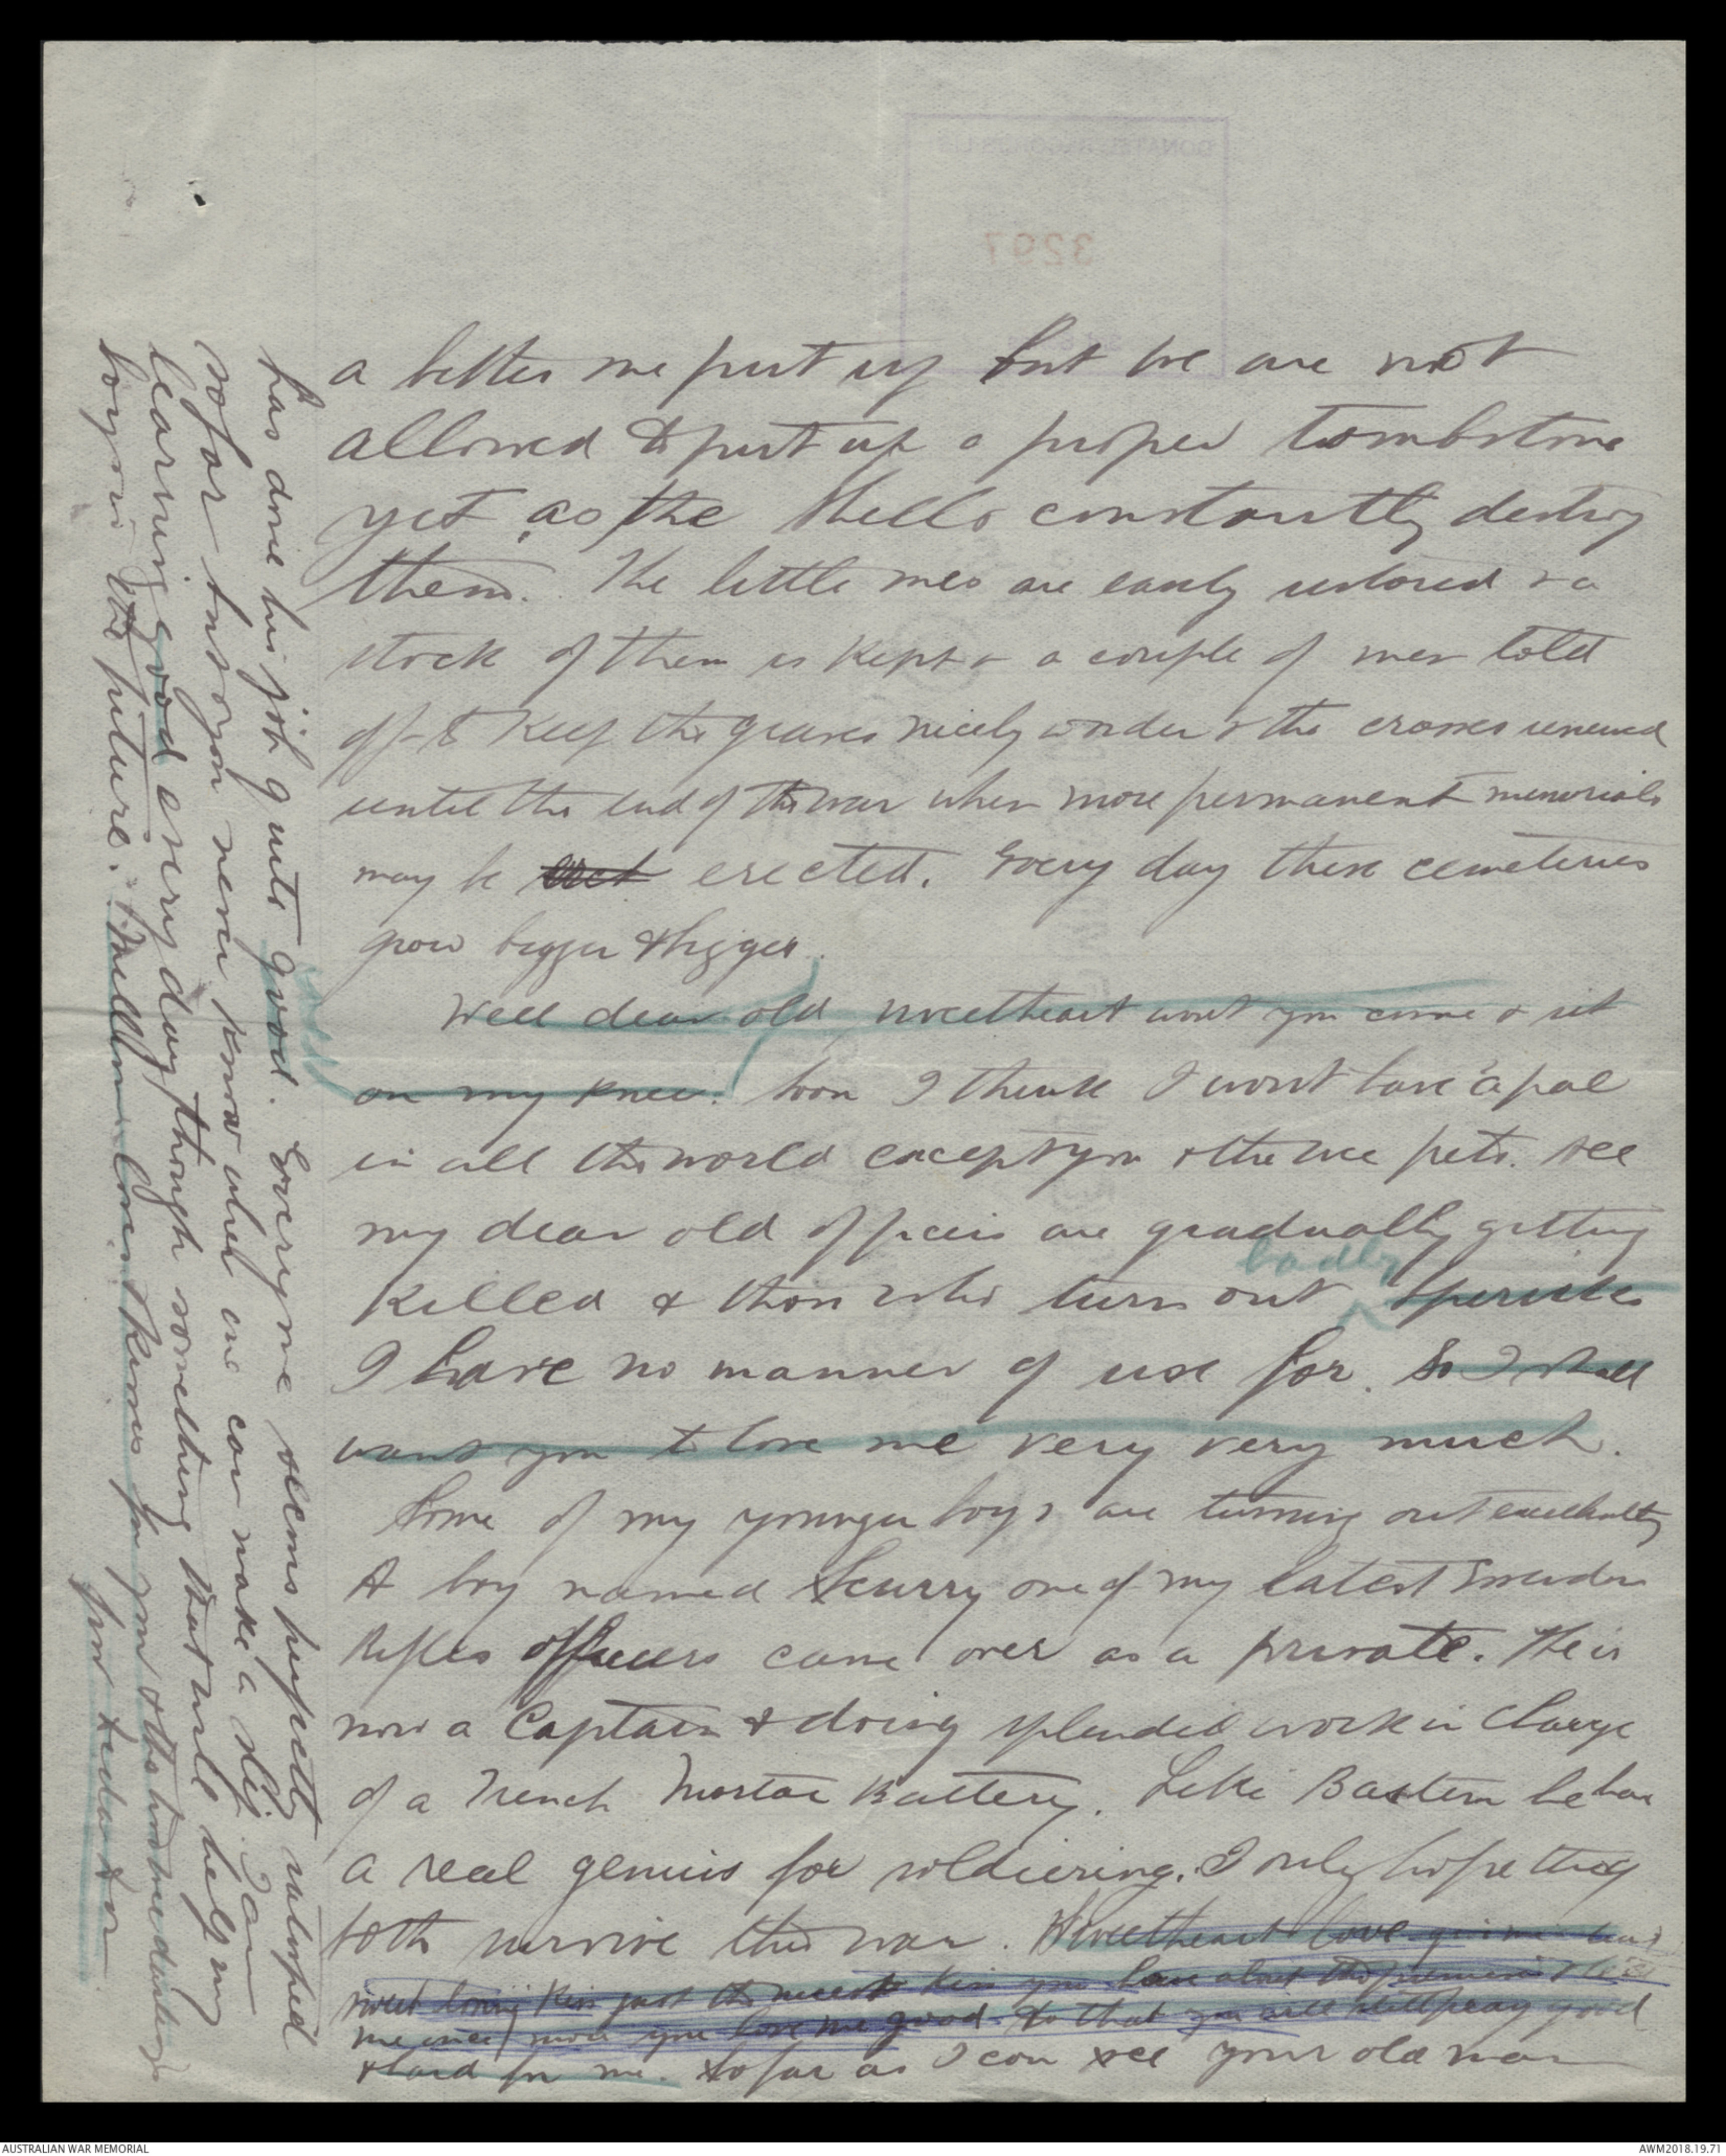 DONATED RECORDS LIST
3297
a better one put up but we are not
allowed to put up a proper tombstone
yet as the shells constantly destroy
them. The little ones are easily restored & a
stock of them is kept & a couple of men told
off to keep the graves nicely in order & the crosses renewed
until the end of the war when more permanent memorials
may be erect erected. Every day these cemeteries
grow bigger & bigger.
Well dear old sweetheart wont you come & sit
on my knee. Soon I think I wont have a pal
in all the world except you & the wee pets. All
my dear old officers are gradually getting
badly
killed & those who turn out
I have no manner of use for. So I shall
want you to love me very very much.
Some of my younger boys are turning out excellently
A boy named Scurry one of my latest Essendon
Rifles officers came over as a private. He is
now a Captain & doing splendid work in charge
of a Trench Mortar Battery. Like Bastin he has
a real genius for soldiering. I only hope they
both survive this war. Sweetheart love give me
sweet loving kiss just the nicest kiss you have about the premises & tell
me once more you love me good. So that you will still pray good
& hard for me. So far as I can see your old man
has done his job quite good. Everyone seems perfectly satisfied
so far but you never know when one can make a slip. I am
learning good every day though something that will help my
boys in the future. Million loves & kisses for you & the two wee darlings